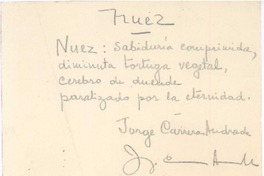 Nuez
Nuez: sabiduría comprimida,
diminuta tortuga vegetal,
cerebro de duende
paralizado por la eternidad.
Jorge Carrera Andrade